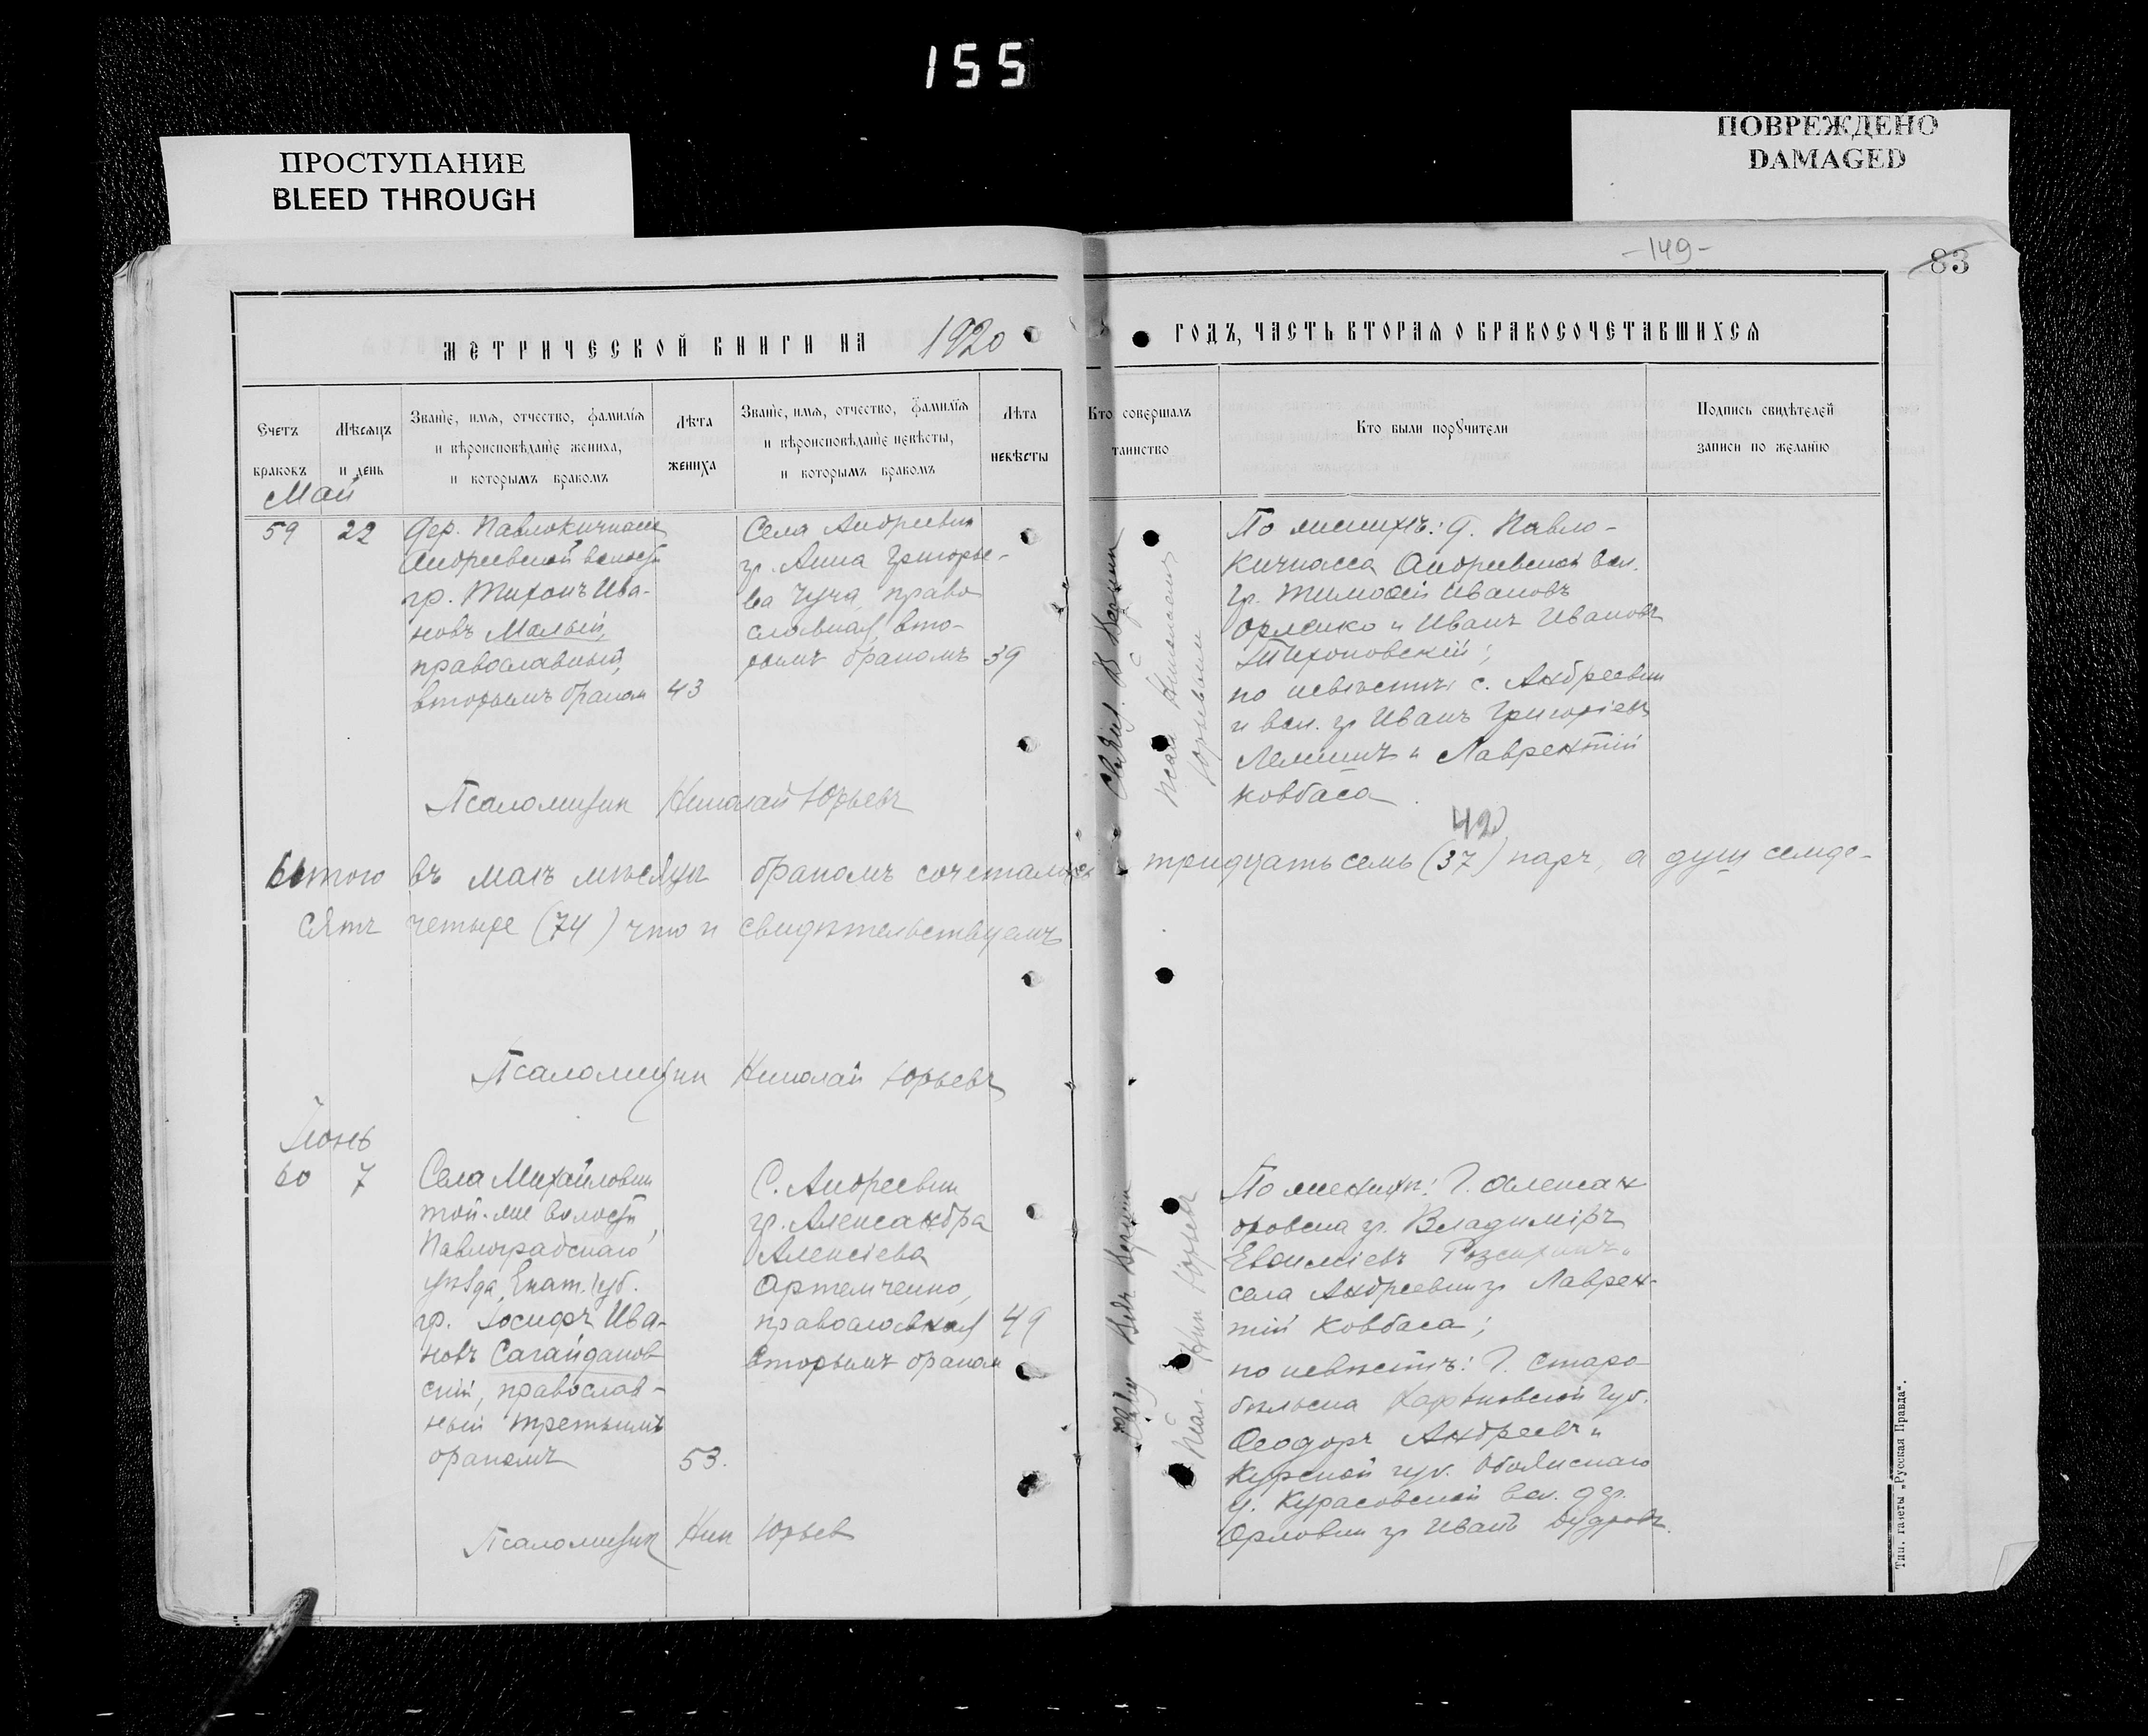 155
ПРОСТУПАНИЕ
BLEED THROUGH
ПОВРЕЖДЕНО
DAMAGED
-149-
83
МЕТРИЧЕСКОЙ КНИГИ НА 1920
ГОДЪ, ЧАСТЬ ВТОРАЯ О БРАКОСОЧЕТАВШИХСЯ
Счетъ
браковъ
Мѣсяцъ
и день
Званіе, имя, отчество, фамилія
и вѣроисповѣданіе жениха,
и которымъ бракомъ
Лѣта
жениха
Званіе, имя, отчество, фамилія
и вѣроисповѣданіе невѣсты,
и которымъ бракомъ
Лѣта
невѣсты
Кто совершалъ
таинство
Кто были порꙋчители
Подпись свидѣтелей
записи по желанію
Май
59
22
Дер. Павлокичкаса
Андреевской волости
гр. Тихонъ Ива-
новъ Малый,
православный,
вторымъ браком
43
Села Андреевки
гр. Анна Григорье-
ва Чуча, право
славная, вто-
рымъ бракомъ
39
Псал. Николай
Юрьевъ
По женихѣ: д. Павло-
кичкасса Андреевской вол.
гр. Тимоѳей Ивановъ
Орленко и Иванъ Ивановъ
Тихоновскій;
по невѣстѣ: с. Андреевки
и вол. гр Иванъ Григоріевъ
и Лаврентій
Ковбаса
Псаломщик Николай Юрьевъ
42
Итого въ маѣ мѣсяцѣ бракомъ сочеталось тридцать семь (37) паръ, а душ семде-
сятъ четыре (74) что и свидѣтельствуемъ
Псаломщик Николай Юрьевъ
Іюнь
60
7
Села Михайловки
той-же волости,
Павлоградскаго
уѣзда, Екат. губ.
гр. Іосифъ Ива-
новъ Сагайдаков
скій, православ-
ный третьимъ
бракомъ
53.
С. Андреевки
гр. Александра
Алексіева
Артемченко,
православная
вторымъ браком
49
Псал. Ник Юрьев
По женихѣ: Г. Алексан
дровска гр. Владиміръ
Евѳиміевъ
села Андреевки гр Лаврен-
тій Ковбаса;
по невѣстѣ: Г. Старо-
бѣльска Харьковской губ.
Ѳеодоръ Андреевъ и
Курской губ. Обоянскаго
у. Курасовской вол. дер.
Орловки гр Иванъ
Псаломщик Ник Юрьев
Тип. газеты „Русская Правда“.